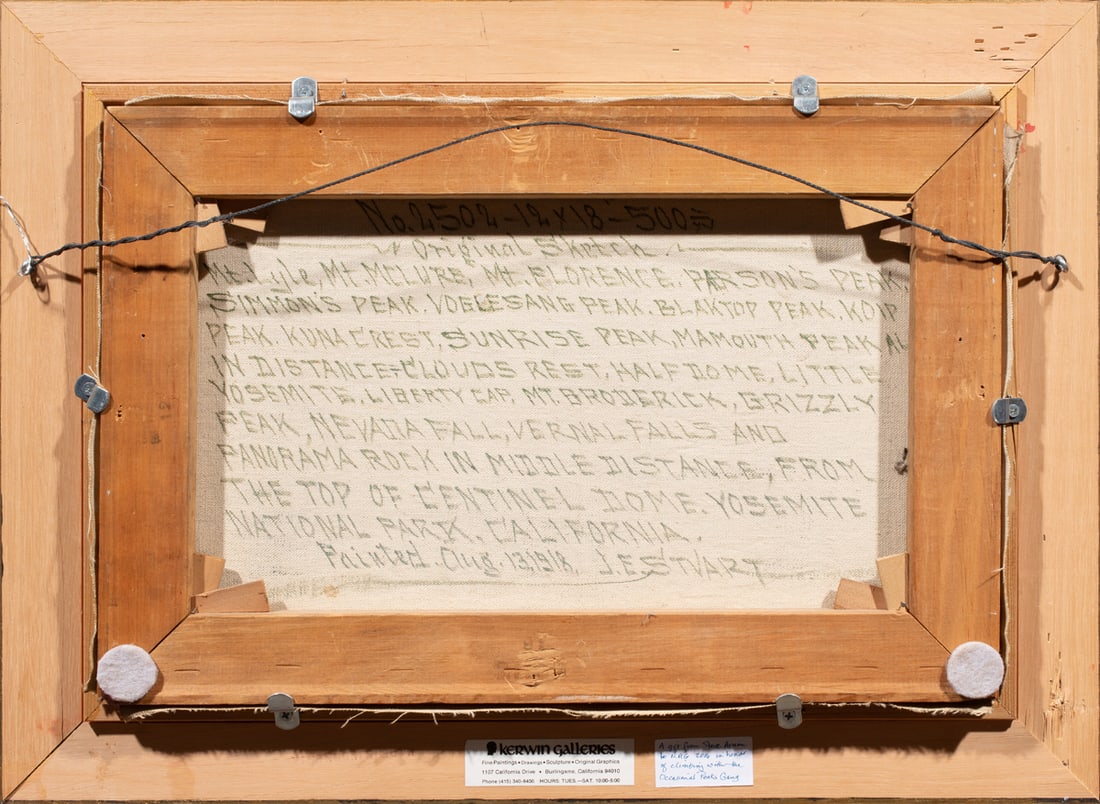 No. 2502 - 12 x 18 - 500
Original Sketch.
Mt. Lyle, Mt. McLURE, Mt. FLORENCE. PARSON'S PEAK,
SIMMON'S PEAK. VOGLESANG PEAK. BLAKTOP PEAK, KOIP
PEAK. KUNA CREST, SUNRISE PEAK, MAMOUTH PEAK AL
IN DISTANCE - CLOUDS REST, HALF DOME, LITTLE
YOSEMITE, LIBERTY CAP, MT. BRODERICK, GRIZZLY
PEAK, NEVADA FALL, VERNAL FALLS AND
PANORAMA ROCK IN MIDDLE DISTANCE, FROM
THE TOP OF CENTINEL DOME. YOSEMITE
NATIONAL PARK. CALIFORNIA.
Painted. Aug. 13, 1918. J.E. STUART
KERWIN GALLERIES
Fine Paintings • Drawings • Sculpture • Original Graphics
1107 California Drive • Burlingame, California 94010
Phone (415) 340-8400 HOURS: TUES.—SAT. 10:00-5:00
A gift from Steve
to 2006 in honor
of climbing with the
Peaks Gang